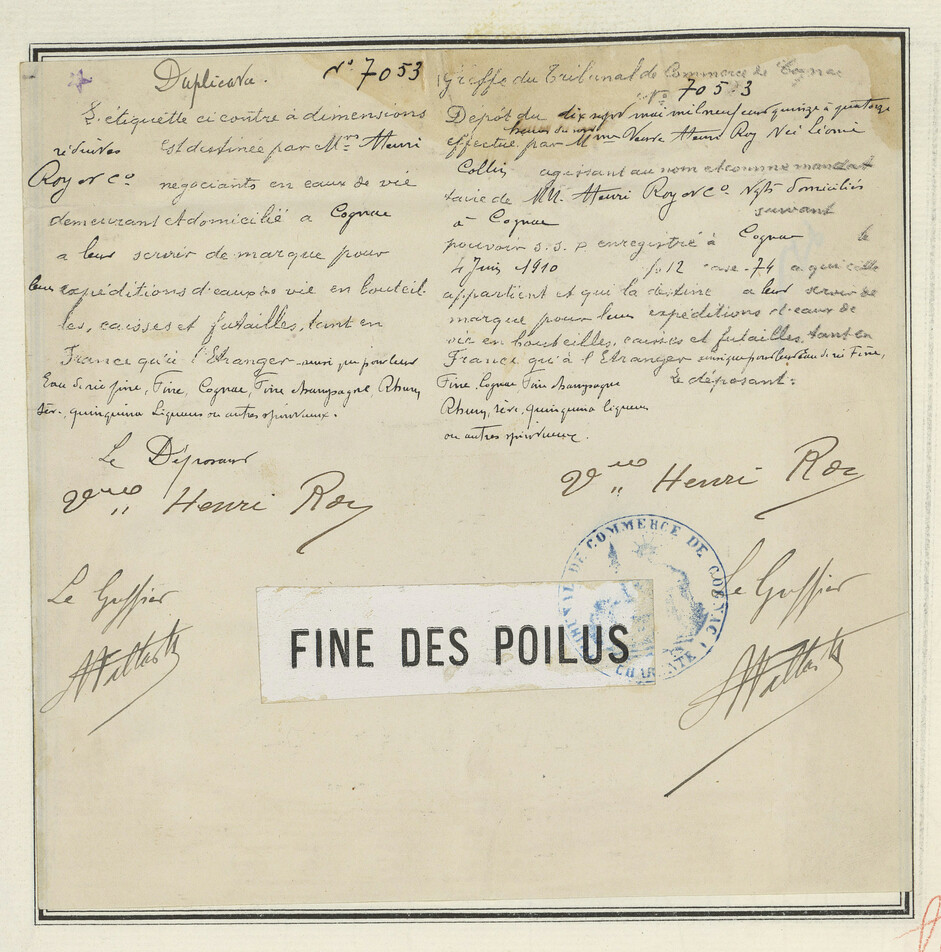 Duplicata. N° 7053
L'étiquette ci contre à dimensions
réduites est destinée par Mrs Henri
Roy et Co negociants en eaux de vie
demeurant et domicilié a Cognac
a leur servir de marque pour
leurs expéditions d'eaux de vie en bouteil-
les, caisses et futailles, tant en
France qu'à l'Etranger
Eau de vie fine, Fine, Cognac, Fine champagne, Rhum,
quinquina Liqueurs ou autres spiritueux.
Le Déposant
Vve " Henri Roy
Le Greffier
Greffe du Tribunal de Commerce de Cognac
N° 7053
Dépôt du dix sept mai mil neuf cent quinze à quatorze
heures du soir
effectué par Mme Veuve Henri Roy Née
Collin agissant au nom et comme manda-
taire de MM. Henri Roy et Co Ngts domiciliés
à Cognac suivant
pouvoir s.s.p enregistré à Cognac le
4 Juin 1910 fo 12 case 74 a qui elle
appartient et qui la destine a leur servir de
marque pour leurs expéditions d'eaux de
vie en bouteilles, caisses et futailles, tant en
France qu'à l'Etranger Eau de vie Fine,
Fine, Cognac Fine champagne
Le déposant:
Rhum, quinquina liqueurs
ou autres spiritueux.
Vve " Henri Roy
Le Greffier
FINE DES POILUS
TRIBUNAL DE COMMERCE DE COGNAC
CHARENTE